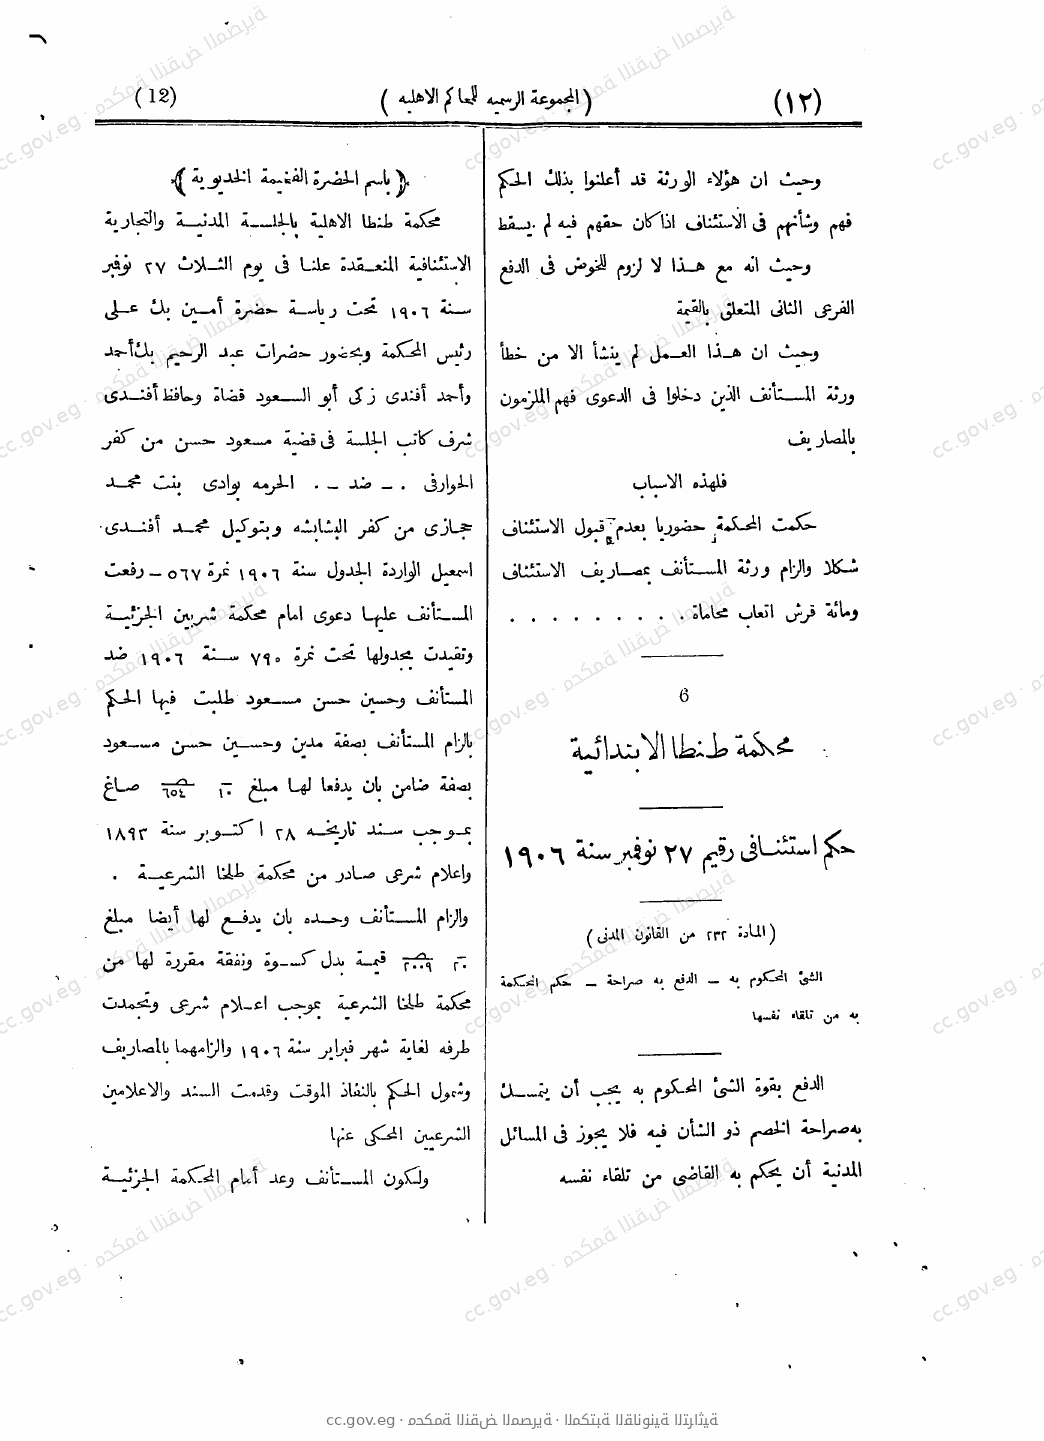 (١٢)
(المجموعة الرسمية للمحاكم الاهلية)
(12)
وحيث ان هؤلاء الورثة قد أعلنوا بذلك الحكم
فهم وشأنهم فى الاستئناف اذا كان حقهم فيه لم يسقط
وحيث انه مع هذا لا لزوم للخوض فى الدفع
الفرعى الثانى المتعلق بالقيمة
وحيث ان هذا العمل لم ينشأ الا من خطأ
ورثة المستأنف الذين دخلوا فى الدعوى فهم الملزمون
بالمصاريف
فلهذه الاسباب
حكمت المحكمة حضوريا بعدم قبول الاستئناف
شكلا والزام ورثة المستأنف بمصاريف الاستئناف
ومائة قرش اتعاب محاماة . . . . . . . . .
6
محكمة طنطا الابتدائية
حكم استئنافى رقيم ٢٧ نوفمبر سنة ١٩٠٦
(المادة ٢٣٢ من القانون المدنى)
الشئ المحكوم به – الدفع به صراحة – حكم المحكمة
به من تلقاء نفسها
الدفع بقوة الشئ المحكوم به يجب أن يتمسك
به صراحة الخصم ذو الشأن فيه فلا يجوز فى المسائل
المدنية أن يحكم به القاضى من تلقاء نفسه
﴿باسم الحضرة الفخيمة الخديوية﴾
محكمة طنطا الاهلية بالجلسة المدنية والتجارية
الاستئنافية المنعقدة علنا فى يوم الثلاث ٢٧ نوفمبر
سنة ١٩٠٦ تحت رياسة حضرة أمين بك على
رئيس المحكمة وبحضور حضرات عبد الرحيم بك أحمد
وأحمد أفندى زكى أبو السعود قضاة وحافظ أفندى
شرف كاتب الجلسة فى قضية مسعود حسن من كفر
الحوارفى . – ضد – . الحرمه بوادى بنت محمد
حجازى من كفر البشابشه وبتوكيل محمد أفندى
اسمعيل الواردة الجدول سنة ١٩٠٦ نمرة ٥٦٧ – رفعت
المستأنف عليها دعوى امام محكمة شربين الجزئية
وتقيدت بجدولها تحت نمرة ٧٩٠ سنة ١٩٠٦ ضد
المستأنف وحسين حسن مسعود طلبت فيها الحكم
بالزام المستأنف بصفة مدين وحسين حسن مسعود
بصفة ضامن بان يدفعا لها مبلغ ١٠ ٦٥٤ صاغ
بموجب سند تاريخه ٢٨ اكتوبر سنة ١٨٩٣
واعلام شرعى صادر من محكمة طلخا الشرعية .
والزام المستأنف وحده بان يدفع لها أيضا مبلغ
٢٠ ٢٠٠٩ قيمة بدل كسوة ونفقة مقررة لها من
محكمة طلخا الشرعية بموجب اعلام شرعى وتجمدت
طرفه لغاية شهر فبراير سنة ١٩٠٦ والزامهما بالمصاريف
وشمول الحكم بالنفاذ الموقت وقدمت السند والاعلامين
الشرعيين المحكى عنها
ولكون المستأنف وعد أمام المحكمة الجزئية
cc.gov.eg · محكمة النقض المصرية · المكتبة القانونية التراثية